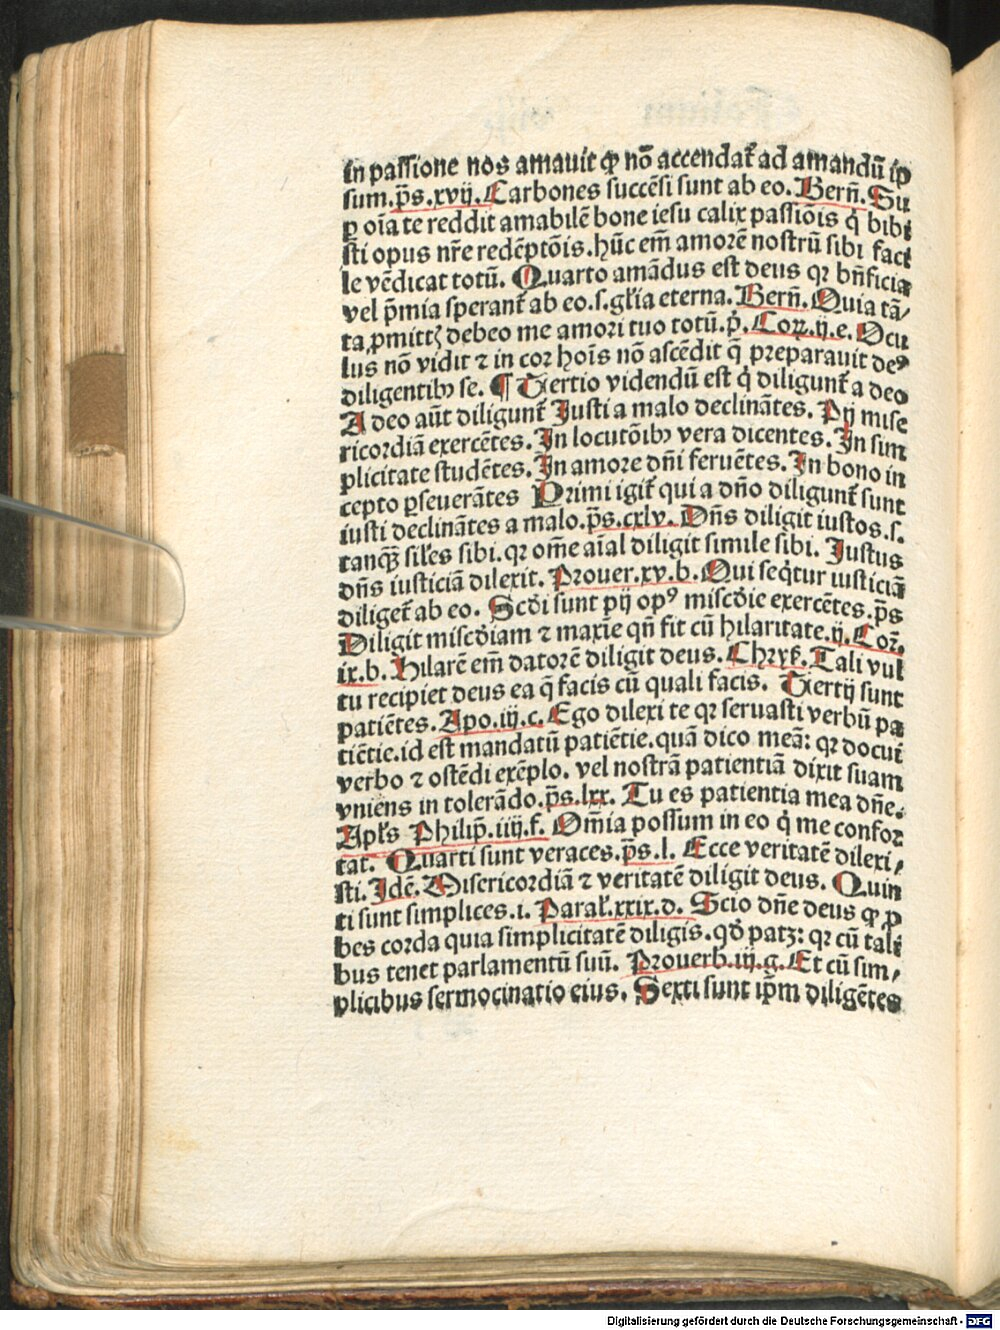 in passione nos amauit ꝙ nō accendat᷑ ad amandū ip
sum.p̄s.xvij. Carbones succēsi sunt ab eo. Berñ. Su
ꝑ oīa te reddit amabilē bone iesu calix passiōis q̇ bibi
sti opus nr̄e redēptōis.hūc em̄ amorē nostrū sibi faci
le vēdicat totū. Quarto amādus est deus qꝛ bn̄ficia
vel p̄mia sperant᷑ ab eo.s.gl̄ia eterna. Berñ. Quia tā⸗
ta ꝓmittꝫ debeo me amori tuo totū.p̄. Coꝛ.ij.e. Ocu
lus nō vidit ⁊ in coꝛ hoīs nō ascēdit q̄ preparauit deꝰ
diligentibꝫ se. ¶ Tertio videndū est q̇ diligunt᷑ a deo
A deo aūt diligunt᷑ Justi a malo declinātes. Pij mise
ricordiā exercētes. In locutōibꝫ vera dicentes. In sim
plicitate studētes. In amore dn̄i feruētes. In bono in
cepto ꝑseuerātes Primi igit᷑ qui a dn̄o diligunt᷑ sunt
iusti declinātes a malo.p̄s.cxlv. Dn̄s diligit iustos.s.
tanqꝫ sil̄es sibi.qꝛ om̄e aīal diligit simile sibi. Justus
dn̄s iusticiā dilexit. Prouer.xv.b. Qui seq̇tur iusticiā
diliget᷑ ab eo. Scd̄i sunt pij opꝰ miscd̄ie exercētes.p̄s
Diligit miscd̄iam ⁊ maxīe qn̄ fit cū hilaritate.ij. Coꝛ.
ix.b. Hilarē em̄ datorē diligit deus. Chrys̄. Tali vul
tu recipiet deus ea q̄ facis cū quali facis. Tertij sunt
patiētes. Apo.iij.c. Ego dilexi te qꝛ seruasti verbū pa
tiētie.id est mandatū patiētie.quā dico meā: qꝛ docui
verbo ⁊ ostēdi exēplo. vel nostrā patientiā dixit suam
vniens in tolerādo.p̄s.lxx. Tu es patientia mea dn̄e.
Apl̄s Philip̄.iiij.f. Om̄ia possum in eo q̇ me confoꝛ
tat. Quarti sunt veraces.p̄s.l. Ecce veritatē dilexi⸗
sti. Idē. Misericordiā ⁊ veritatē diligit deus. Quin
ti sunt simplices.i. Paral̄.xxix.d. Scio dn̄e deus ꝙ ꝓ
bes corda quia simplicitatē diligis.qd̄ patꝫ: qꝛ cū tali
bus tenet parlamentū suū. Prouerb.iij.g. Et cū sim⸗
plicibus sermocinatio eius. Sexti sunt ip̄m diligētes
Digitalisierung gefördert durch die Deutsche Forschungsgemeinschaft - DFG